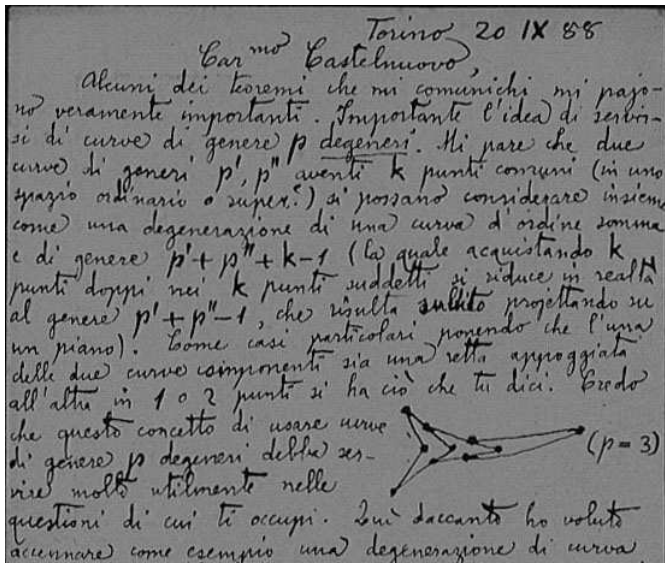 Torino 20 IX 88
Car.mo Castelnuovo,
Alcuni dei teoremi che mi comunichi mi pajo-
no veramente importanti. Importante l'idea di servir-
si di curve di genere p degeneri. Mi pare che due
curve di generi p', p'' aventi k punti comuni (in uno
spazio ordinario o super.e) si possano considerare insieme
come una degenerazione di una curva d'ordine somma
e di genere p' + p'' + k - 1 (la quale acquistando k
punti doppi nei k punti suddetti si riduce in realtà
al genere p' + p'' - 1, che risulta subito projettando su
un piano). Come casi particolari ponendo che l'una
delle due curve componenti sia una retta appoggiata
all'altra in 1 o 2 punti si ha ciò che tu dici. Credo
che questo concetto di usare curve
di genere p degeneri debba ser-
(p = 3)
vire molto utilmente nelle
questioni di cui ti occupi. Quì daccanto ho voluto
accennare come esempio una degenerazione di curva